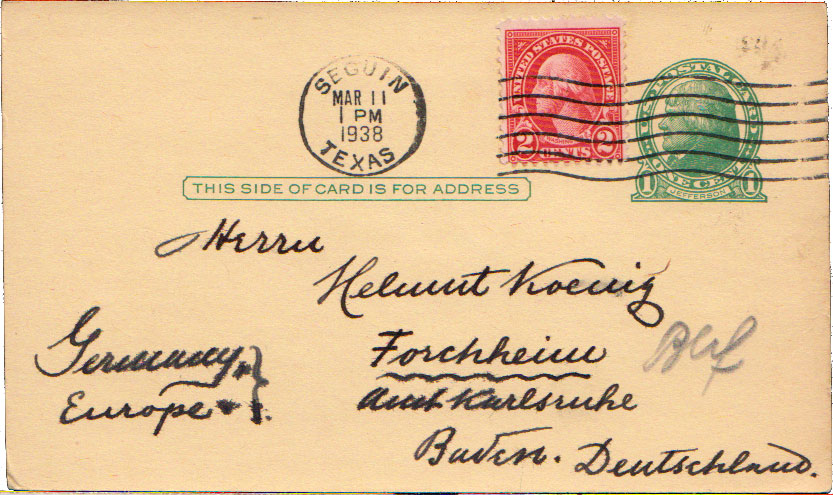 SEGUIN
MAR 11
1 PM
1938
TEXAS
UNITED STATES POSTAGE
WASHINGTON
2 CENTS 2
U.S. POSTAL CARD
1 ONE CENT 1
JEFFERSON
THIS SIDE OF CARD IS FOR ADDRESS
Herrn
Helmut Koenig
Forchheim
Amt Karlsruhe
Baden. Deutschland.
Germany,
Europe